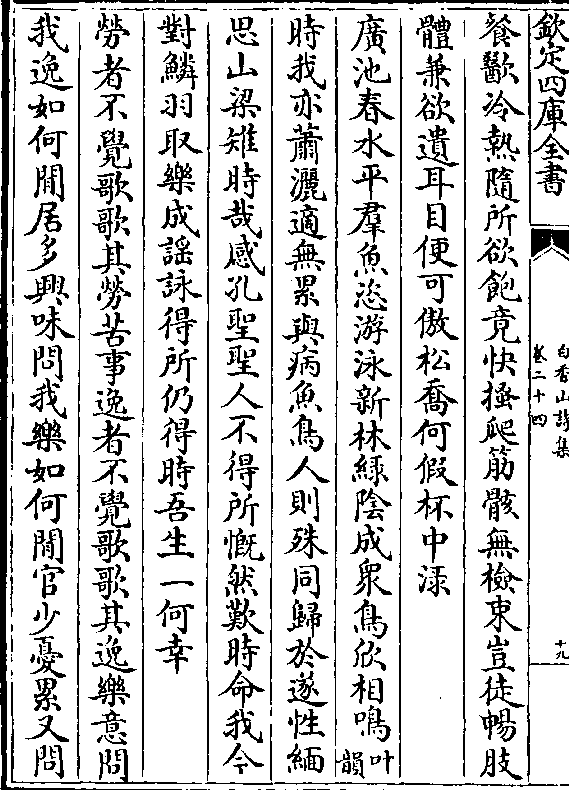 欽定四庫全書
白香山詩集
卷二十四
十九
餐歠冷熱隨所欲飽竟快搔爬筋骸無檢束豈徒暢肢
體兼欲遺耳目便可傲松喬何假杯中渌
廣池春水平羣魚恣游泳新林緑陰成衆鳥欣相鳴叶韻
時我亦蕭灑適無累與病魚鳥人則殊同歸於遂性緬
思山梁雉時哉感孔聖聖人不得所慨然歎時命我今
對鱗羽取樂成謡詠得所仍得時吾生一何幸
勞者不覺歌歌其勞苦事逸者不覺歌歌其逸樂意問
我逸如何閒居多興味問我樂如何閒官少憂累又問